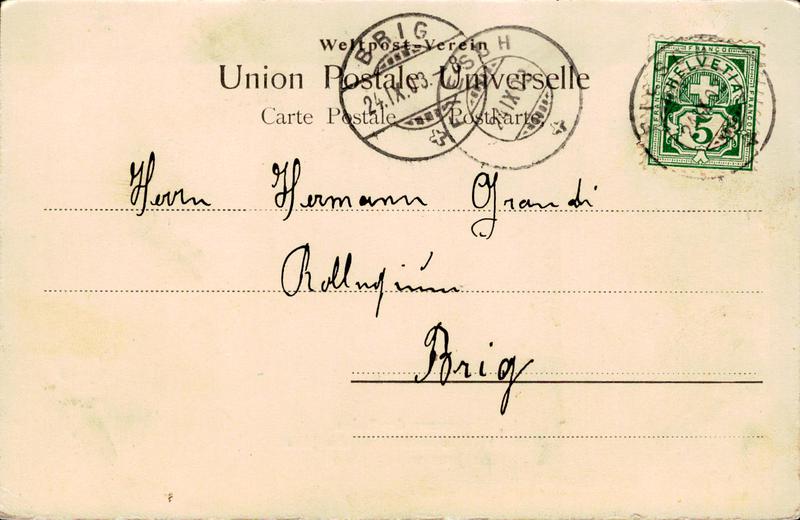 Weltpost-Verein
Union Postale Universelle
Carte Postale Postkarte
BRIG
24.IX.03.
FIESCH
IX.03
FRANCO
HELVETIA
FRANCO
FRANCO
5
Herrn Hermann Grandi
Kollegium
Brig